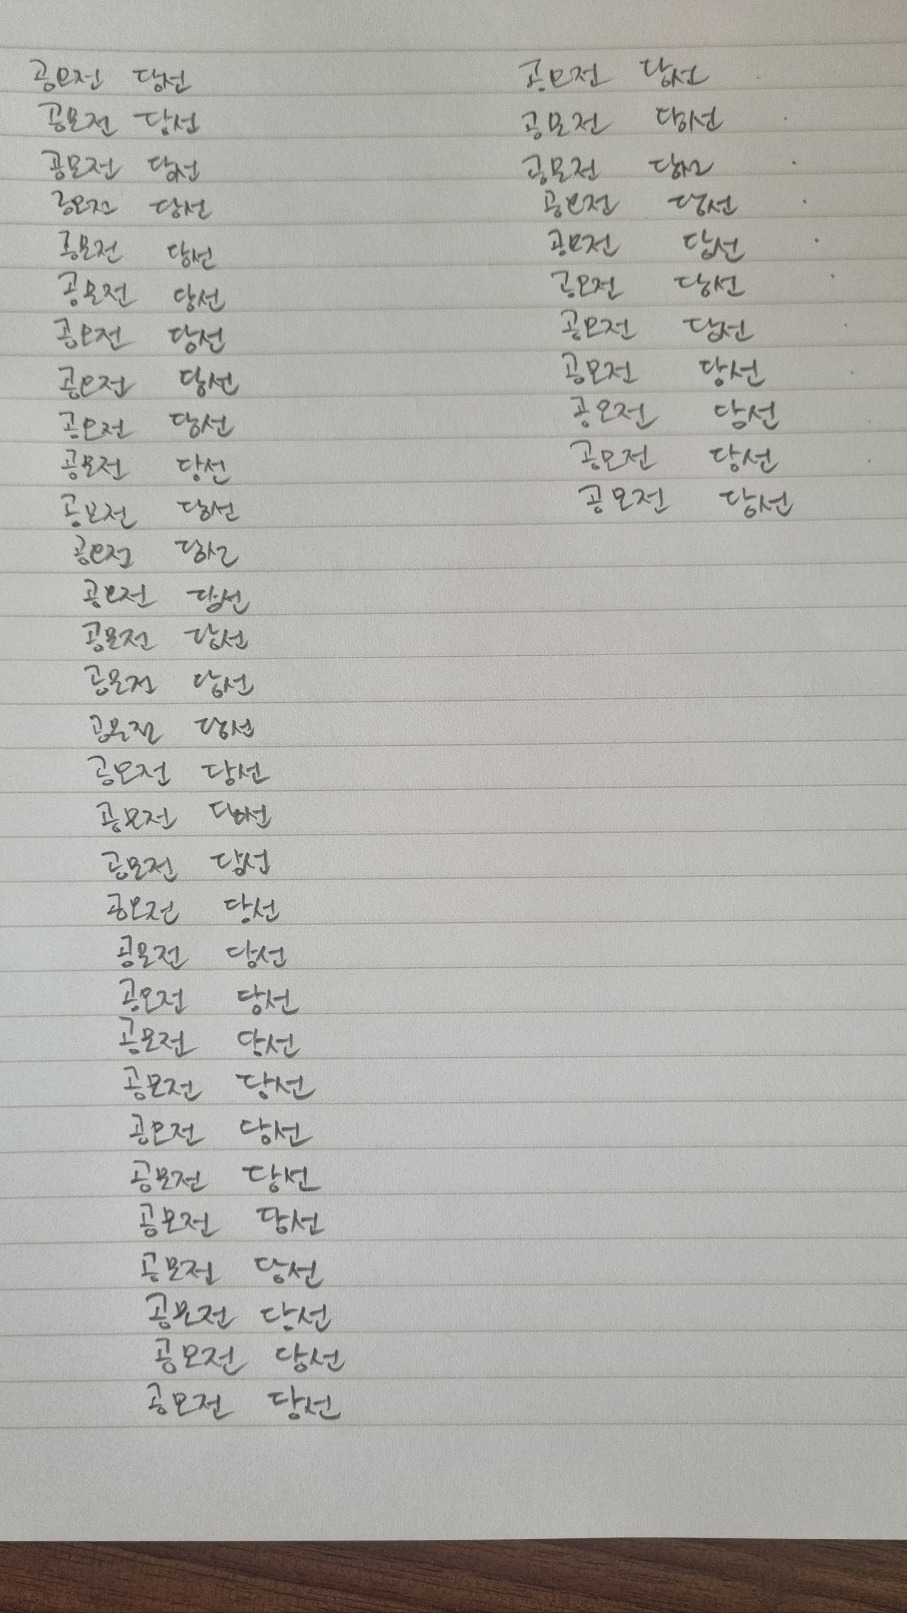 공모전 당선
공모전 당선
공모전 당선
공모전 당선
공모전 당선
공모전 당선
공모전 당선
공모전 당선
공모전 당선
공모전 당선
공모전 당선
공모전 당선
공모전 당선
공모전 당선
공모전 당선
공모전 당선
공모전 당선
공모전 당선
공모전 당선
공모전 당선
공모전 당선
공모전 당선
공모전 당선
공모전 당선
공모전 당선
공모전 당선
공모전 당선
공모전 당선
공모전 당선
공모전 당선
공모전 당선
공모전 당선
공모전 당선
공모전 당선
공모전 당선
공모전 당선
공모전 당선
공모전 당선
공모전 당선
공모전 당선
공모전 당선
공모전 당선